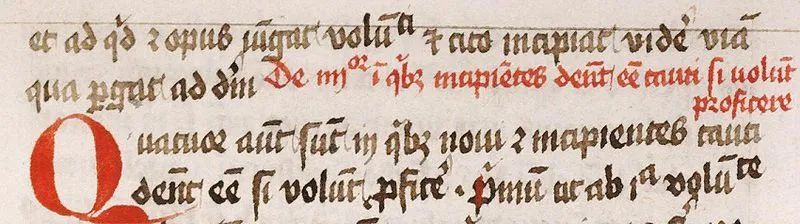 et ad qd ⁊ opus jūgat volūti ⁊ cito incipiat vidē viā
qua ꝑgat ad dm̄ De iiijor ī qbꝫ incipiētes debēt eē cauti si volūt
proficere
Quatuor aūt sūt in qbꝫ noui ⁊ incipientes cauti
debēt eē si volūt ꝓficē. Pmū ē ab ia volūte